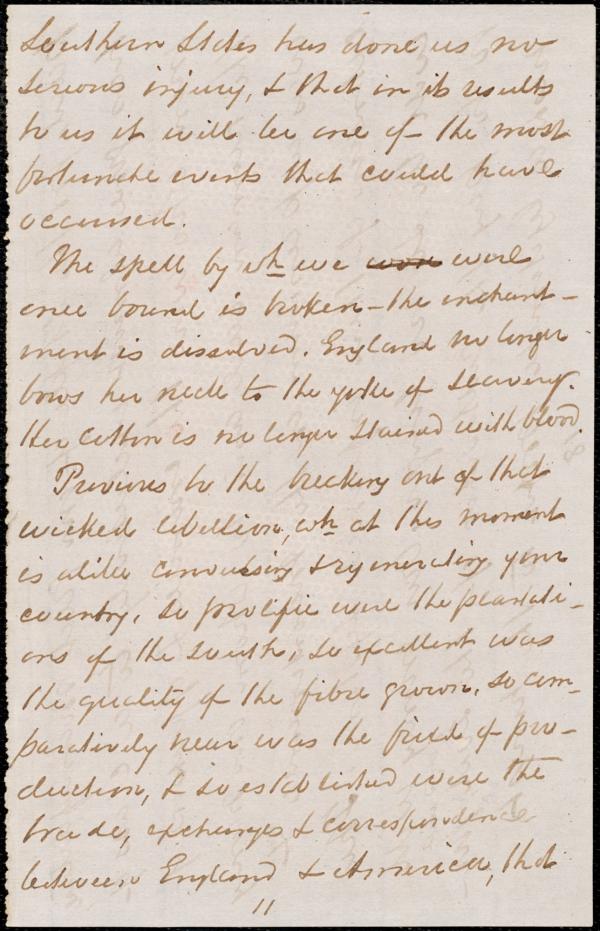 Southern States has done us no
serious injury, & that in its results
to us it will be one of the most
fortunate events that could have
occurred.
The spell by wh we were were
once bound is broken - the enchant-
ment is dissolved. England no longer
bows her neck to the yoke of slavery.
Her cotton is no longer stained with blood.
Previous to the breaking out of that
wicked rebellion, wh at this moment
is alike convulsing & regenerating your
country, so prolific were the plantati-
ons of the south, so excellent was
the quality of the fibre grown, so com-
paratively near was the field of pro-
duction, & so established were the
trade, exchanges & correspondence
between England & America, that
11